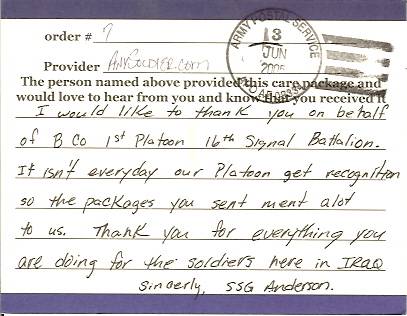 order # 7
Provider AnySoldier.com
ARMY POSTAL SERVICE
13
JUN
2005
The person named above provided this care package and
would love to hear from you and know that you received it
I would like to thank you on behalf
of B Co 1st Platoon 16th Signal Battalion.
It isn't everyday our Platoon get recognition
so the packages you sent ment alot
to us. Thank you for everything you
are doing for the soldiers here in IRAQ
Sincerly, SSG Anderson.